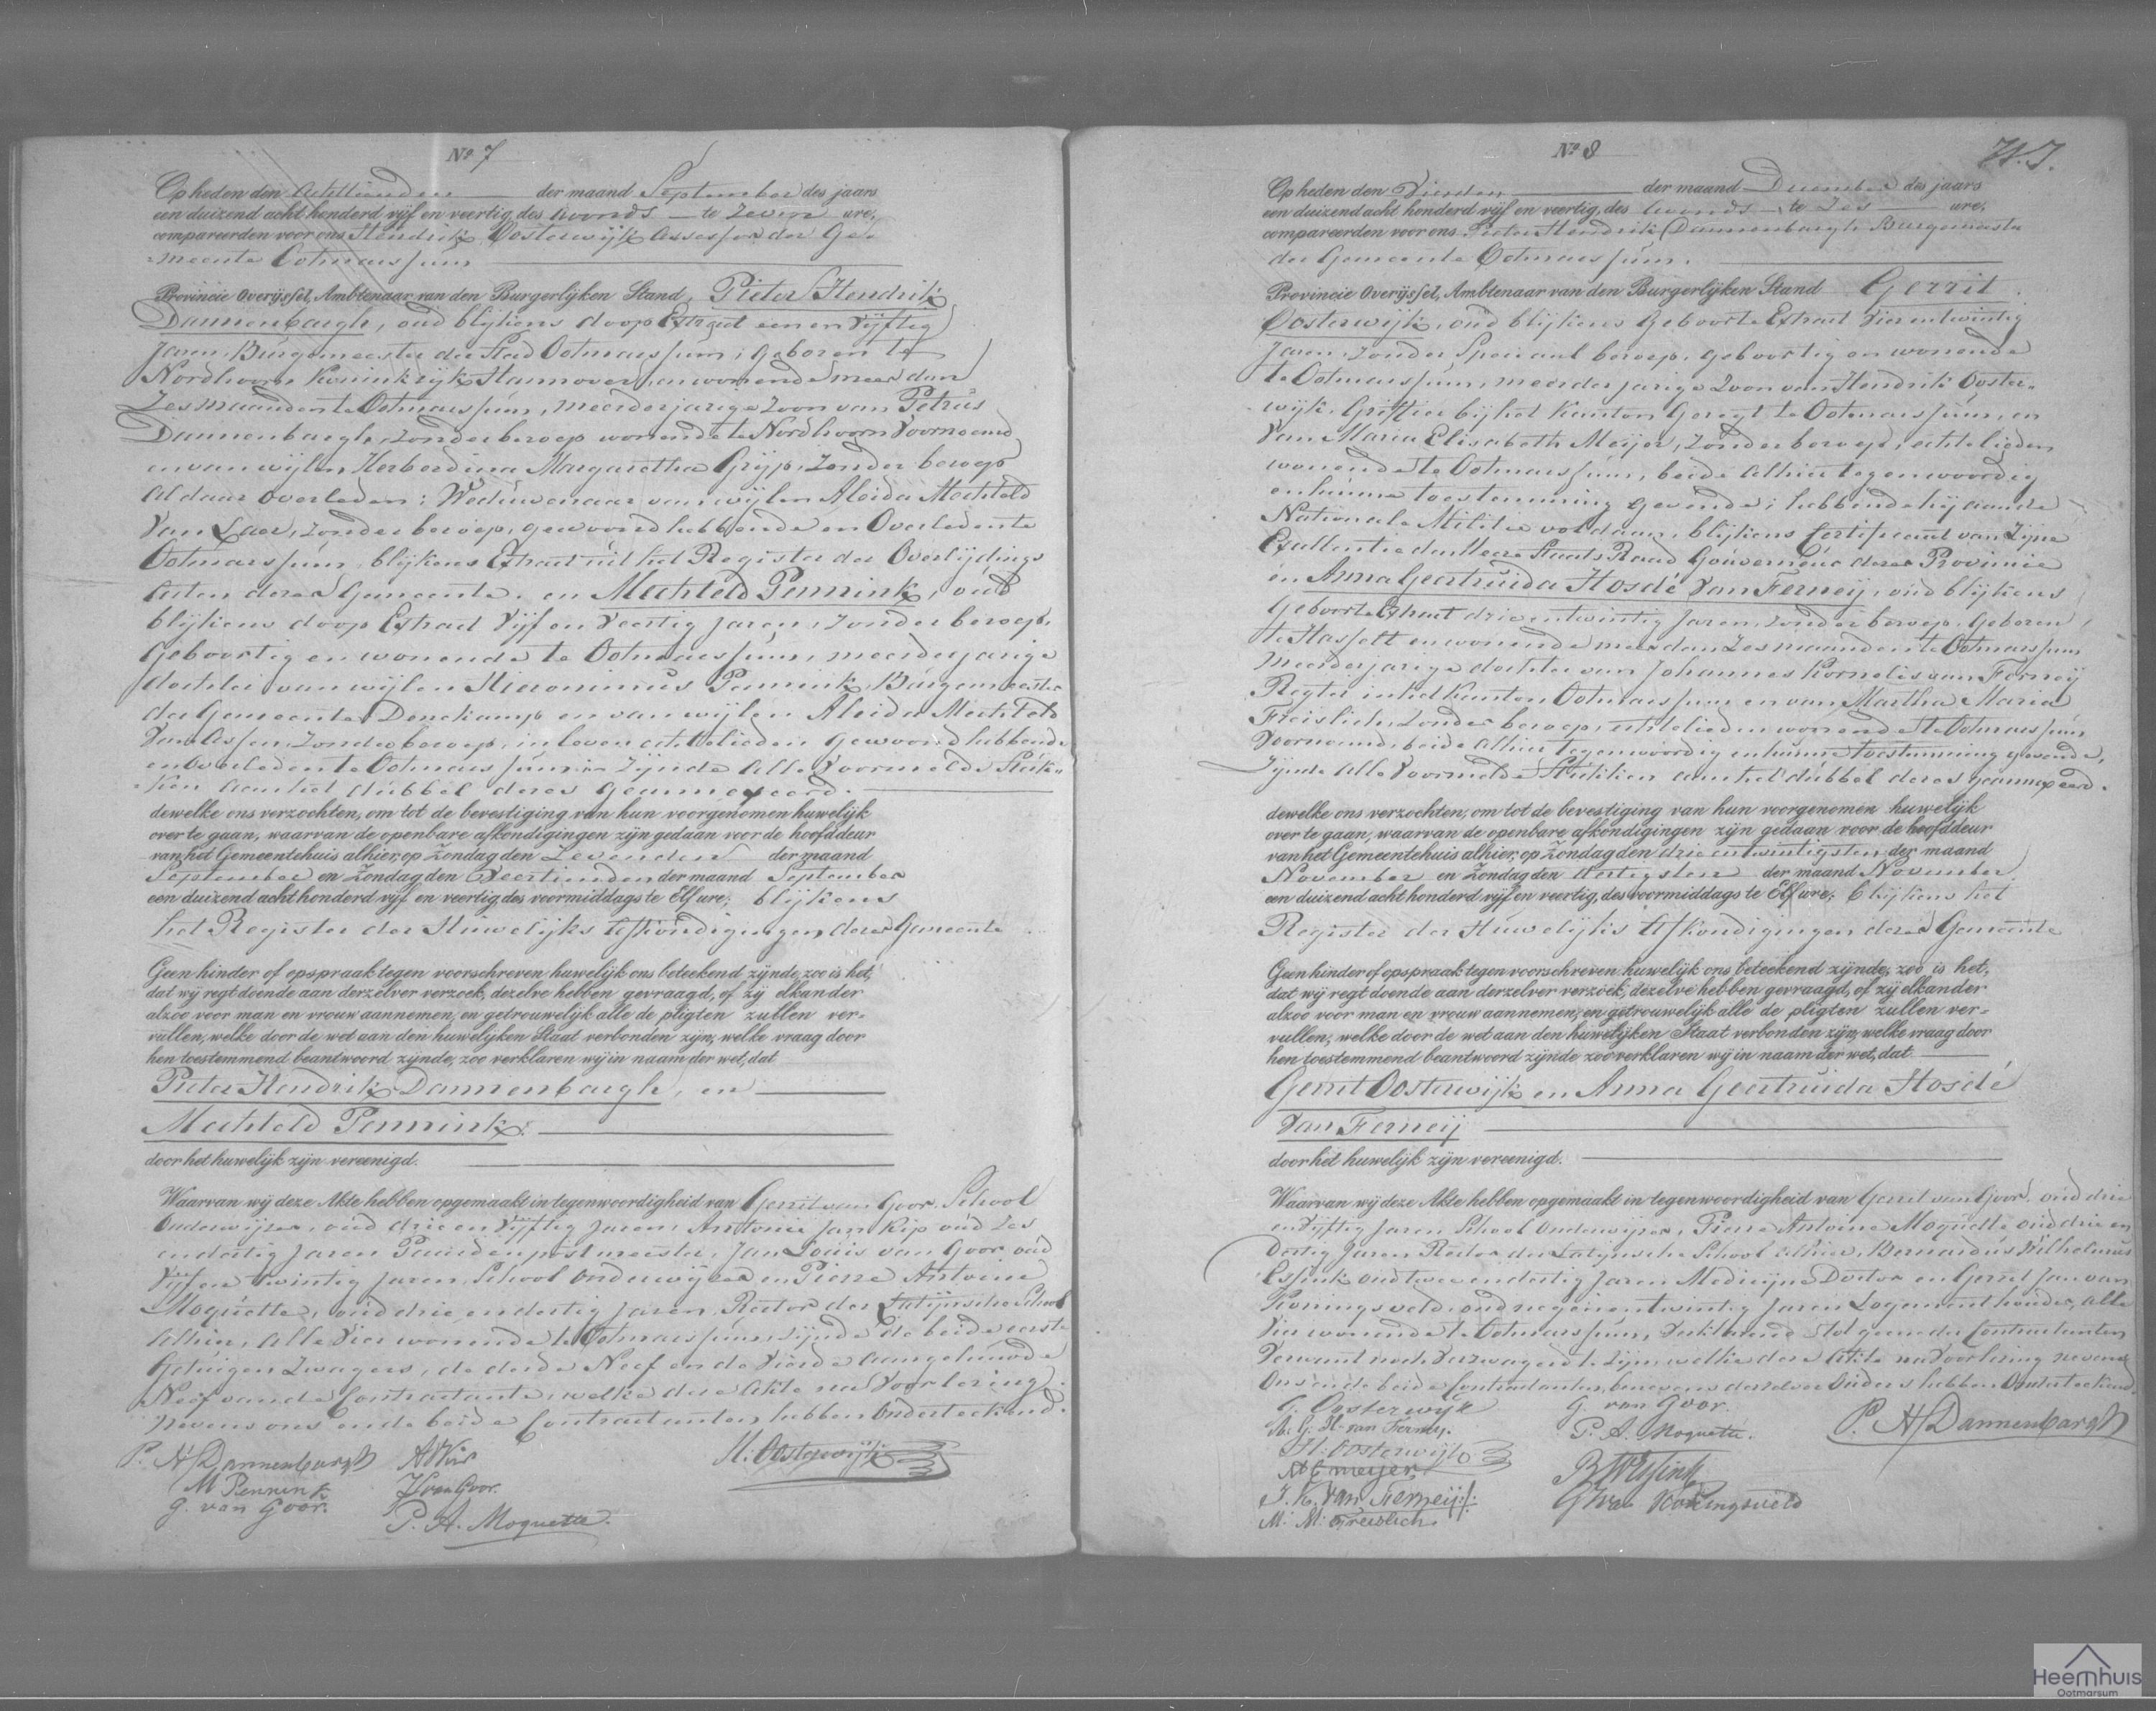 No 7
Op heden den Achttienden der maand September des jaars
een duizend acht honderd vijf en veertig, des avonds te Zeven ure,
compareerden voor ons Hendrik Oosterwijk Assessor der Ge-
meente Ootmarssum
Provincie Overijssel, Ambtenaar van den Burgerlijken Stand, Pieter Hendrik
Dannenbargh, oud blijkens doop Extract een en Vijftig
Jaren, Burgemeester der Stad Ootmarssum; geboren te
Nordhoorn Koninkrijk Hannover, en wonende meer dan
Zes maanden te Ootmarssum, meerderjarige Zoon van Petrus
Dannenbargh, zonder beroep wonende te Nordhoorn Voornoemd
en van wijlen Herberdina Margaretha Grijp, Zonder beroep
Aldaar overleden; Weduwenaar van wijlen Aleida Mechteld
Van Laer, zonder beroep, gewoond hebbende en Overleden te
Ootmarssum, blijkens Extract uit het Register der Overlijdings
Acten dezer Gemeente. en Mechteld Pennink, oud
blijkens doop Extract Vijf en Veertig Jaren, Zonder beroep,
Geboortig en wonende te Ootmarssum, meerderjarige
dochter van wijlen Hieronimus Pennink, Burgemeester
der Gemeente Denekamp en van wijlen Aleida Mechteld
Van Assen, Zonder beroep, in leven echtelieden gewoond hebbende
en Overleden te Ootmarssum; Zijnde Alle Voormelde Stuk-
ken aan het dubbel dezes geannexeerd.
dewelke ons verzochten, om tot de bevestiging van hun voorgenomen huwelijk
over te gaan, waarvan de openbare afkondigingen zijn gedaan voor de hoofddeur
van het Gemeentehuis alhier, op Zondag den Zevenden der maand
September en Zondag den Veertienden der maand September
een duizend acht honderd vijf en veertig, des voormiddags te Elf ure; blijkens
het Register der Huwelijks Afkondigingen dezer Gemeente
Geen hinder of opspraak tegen voorschreven huwelijk ons beteekend zijnde, zoo is het,
dat wij regt doende aan derzelver verzoek, dezelve hebben gevraagd, of zij elkander
alzoo voor man en vrouw aannemen, en getrouwelijk alle de pligten zullen ver-
vullen, welke door de wet aan den huwelijken Staat verbonden zijn, welke vraag door
hen toestemmend beantwoord zijnde, zoo verklaren wij in naam der wet, dat
Pieter Hendrik Dannenbargh, en
Mechteld Pennink
door het huwelijk zijn vereenigd.
Waarvan wij deze Akte hebben opgemaakt in tegenwoordigheid van Gerrit van Goor, School
Onderwijzer, oud drie en Vijftig Jaren, Antonie Jan Kip oud Zes
en dertig Jaren Paardenpostmeester, Jan Louis van Goor, oud
Vijf en twintig Jaren, School Onderwijzer en Pierre Antoine
Moquette, oud drie en dertig Jaren, Rector der Latijnsche School
Alhier, Alle Vier wonende te Ootmarssum, Zijnde de beide eerste
Getuigen Zwagers, de derde Neef en de Vierde Aangehuwde
Neef van de Contractante, welke deze Akte na Voorlezing
nevens ons en de beide Contractanten hebben Onderteekend.
P. H. Dannenbargh
M Pennink
G. van Goor.
A J Kip
J L van Goor.
P. A. Moquette.
H: Oosterwijk
No 8
Op heden den Vierden der maand December des jaars
een duizend acht honderd vijf en veertig, des Avonds te Zes ure,
compareerden voor ons Pieter Hendrik Dannenbargh Burgemeester
der Gemeente Ootmarssum.
Provincie Overijssel, Ambtenaar van den Burgerlijken Stand Gerrit
Oosterwijk, oud blijkens Geboorte Extract Vier en twintig
Jaren, zonder Speciaal beroep, geboortig en wonende
te Ootmarssum, meerderjarige Zoon van Hendrik Ooster-
wijk, Griffier bij het Kanton Geregt te Ootmarssum, en
Van Maria Elisabeth Meijer, Zonder beroep, echtelieden
wonende te Ootmarssum, beide Alhier tegenwoordig
en hunne toestemming gevende; hebbende hij aan de
Nationale Militie voldaan, blijkens Certificaat van Zijne
Excellentie den Heere Staats Raad Gouverneur dezer Provincie
en Anna Geertruida Hosdé Van Ferneij, oud blijkens
Geboorte Extract drie en twintig Jaren, zonder beroep, Geboren
te Hasselt en wonende meer dan Zes maanden te Ootmarssum
Meerderjarige dochter van Johannes Kornelis van Ferneij
Regter in het Kanton Ootmarssum en van Martha Maria
Freislich, Zonder beroep, echtelieden wonende te Ootmarssum
Voornoemd, beide Alhier tegenwoordig en hunne toestemming gevende,
Zijnde Alle Voormelde Stukken aan het dubbel dezes geannexeerd.
dewelke ons verzochten, om tot de bevestiging van hun voorgenomen huwelijk
over te gaan, waarvan de openbare afkondigingen zijn gedaan voor de hoofddeur
van het Gemeentehuis alhier, op Zondag den drie en twintigsten der maand
November en Zondag den dertigsten der maand November
een duizend acht honderd vijf en veertig, des voormiddags te Elf ure; blijkens het
Register der Huwelijks Afkondigingen dezer Gemeente
Geen hinder of opspraak tegen voorschreven huwelijk ons beteekend zijnde, zoo is het,
dat wij regt doende aan derzelver verzoek, dezelve hebben gevraagd, of zij elkander
alzoo voor man en vrouw aannemen, en getrouwelijk alle de pligten zullen ver-
vullen, welke door de wet aan den huwelijken Staat verbonden zijn, welke vraag door
hen toestemmend beantwoord zijnde zoo verklaren wij in naam der wet, dat
Gerrit Oosterwijk en Anna Geertruida Hosdé
Van Ferneij
door het huwelijk zijn vereenigd.
Waarvan wij deze Akte hebben opgemaakt in tegenwoordigheid van Gerrit van Goor, oud drie
en Vijftig Jaren School Onderwijzer, Pierre Antoine Moquette oud drie en
dertig Jaren Rector der Latijnsche School Alhier, Bernardus Wilhelmus
Essink oud twee en dertig Jaren Medicijne Doctor en Gerrit Jan van
Koningsveld oud negen en twintig Jaren Logementhouder, Alle
Vier wonende te Ootmarssum, Verklarende tot geene der Contractanten
Verwant noch Verzwagerd te Zijn, welke deze Akte na Voorlezing nevens
Ons en de beide Contractanten, benevens derzelver Ouders hebben Onderteekend.
G. Oosterwijk
A. G. H. van Ferneij.
H: Oosterwijk
M E meijer
J. K. Van Ferneij
M: M: Freislich.
G. van Goor.
P. A. Moquette.
B W Essink
G J van Koningsveld
P. H. Dannenbargh
Heemhuis
Ootmarsum